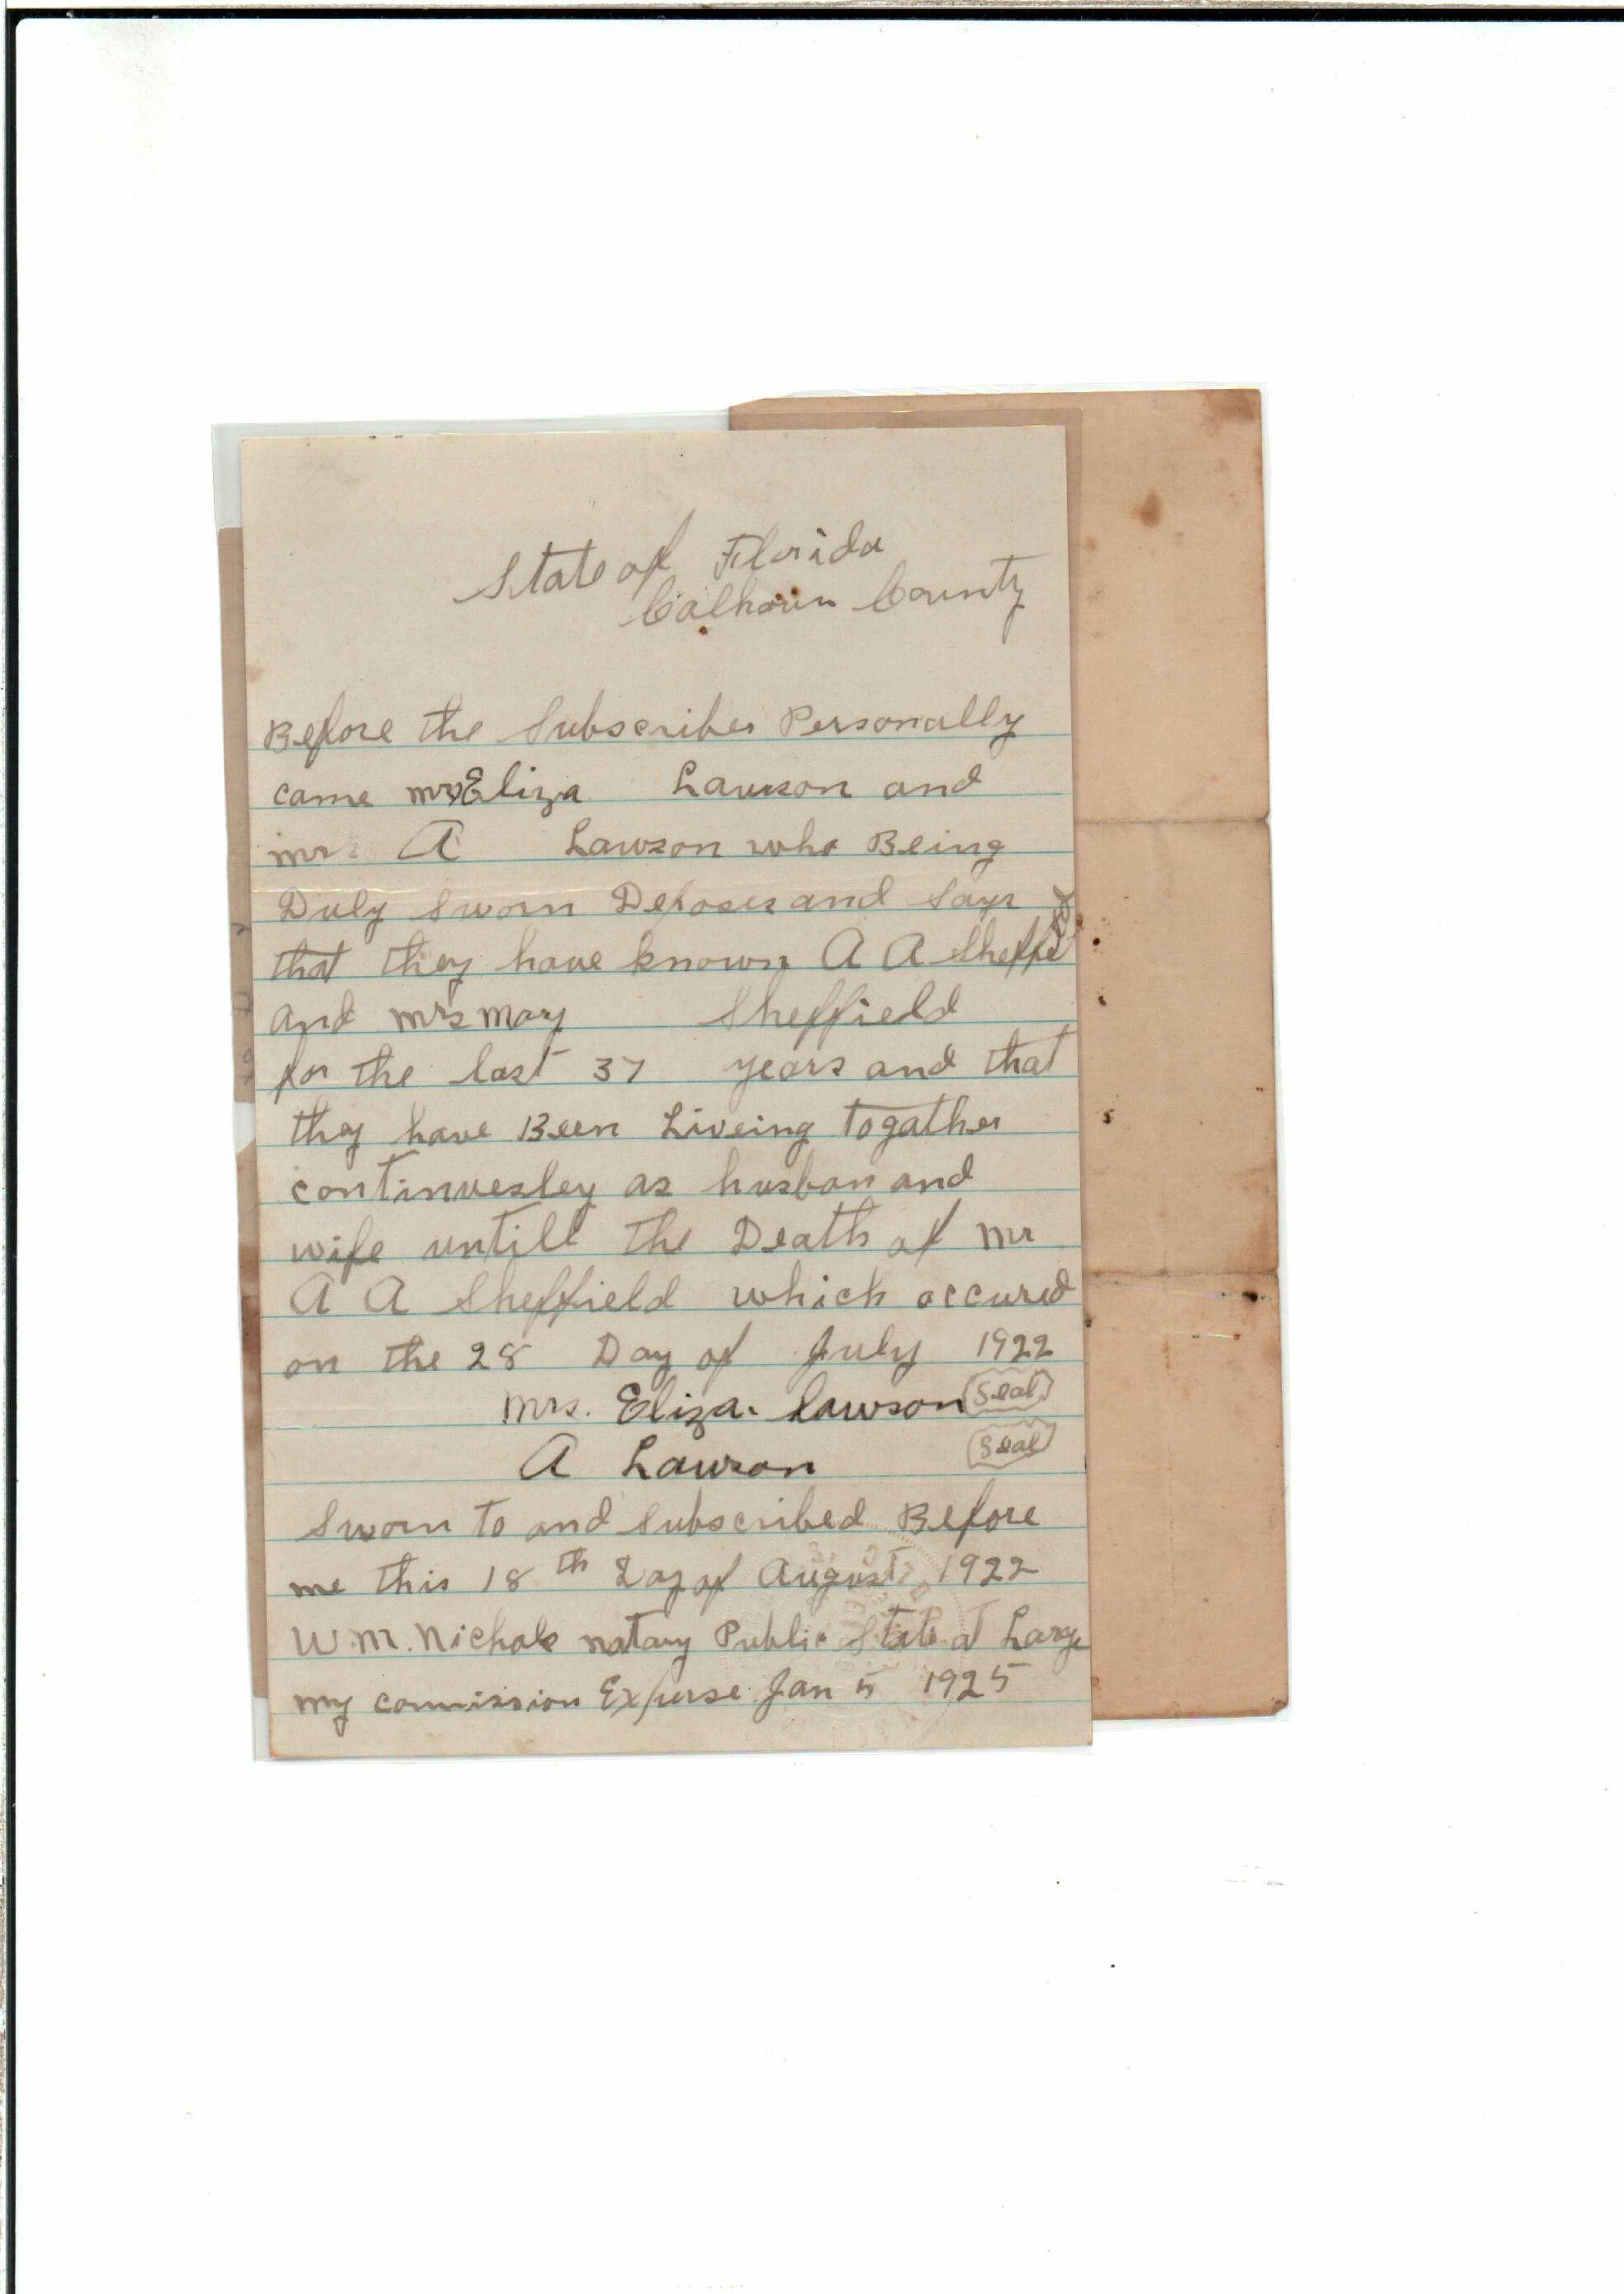 State of Florida
Calhoun County
Before the Subscriber Personally
came mrs Eliza Lawson and
mr A Lawson who Being
Duly Sworn Deposes and Says
that they have known A A Sheffield
and mrs mary Sheffield
for the last 37 years and that
they have Been Liveing togather
continuesley as husban and
wife untill the Death of mr
A A Sheffield which occured
on the 28 Day of July 1922
mrs. Eliza. Lawson Seal
A Lawson Seal
Sworn to and Subscribed Before
me this 18th Day of August 1922
W.M. Nichols notary Public State at Large
my commission Expirse Jan 5 1925